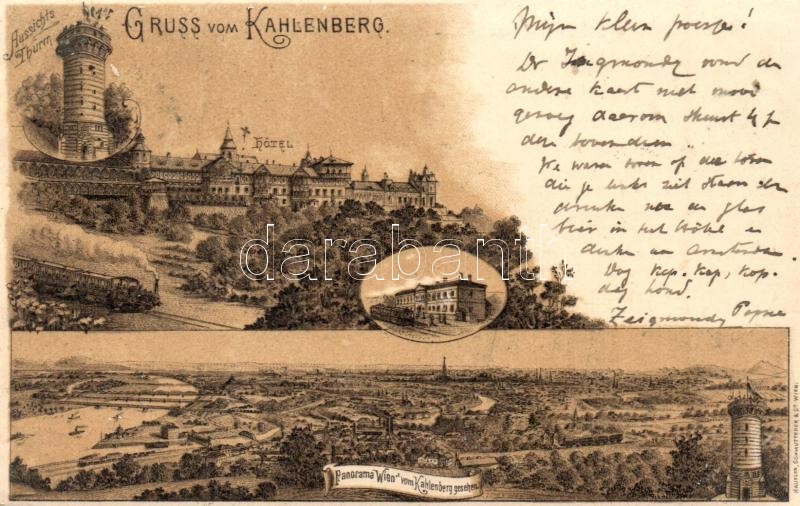 Aussichts
Thurm
GRUSS VOM KAHLENBERG.
HÔTEL
Mijn klein poesje!
De Zsigmondy vond de
andere kaart niet mooi
genoeg daarom stuurt hij
deze bovendien.
We waren boven op den toren
die je links ziet staan en
drinken nu een glas
bier in het Hôtel en
denken aan Amsterdam
Dag kop. kop, kop.
dag hond.
Zsigmondy Papa
darabanth
Panorama Wien's vom Kahlenberg gesehen.
WIEN.